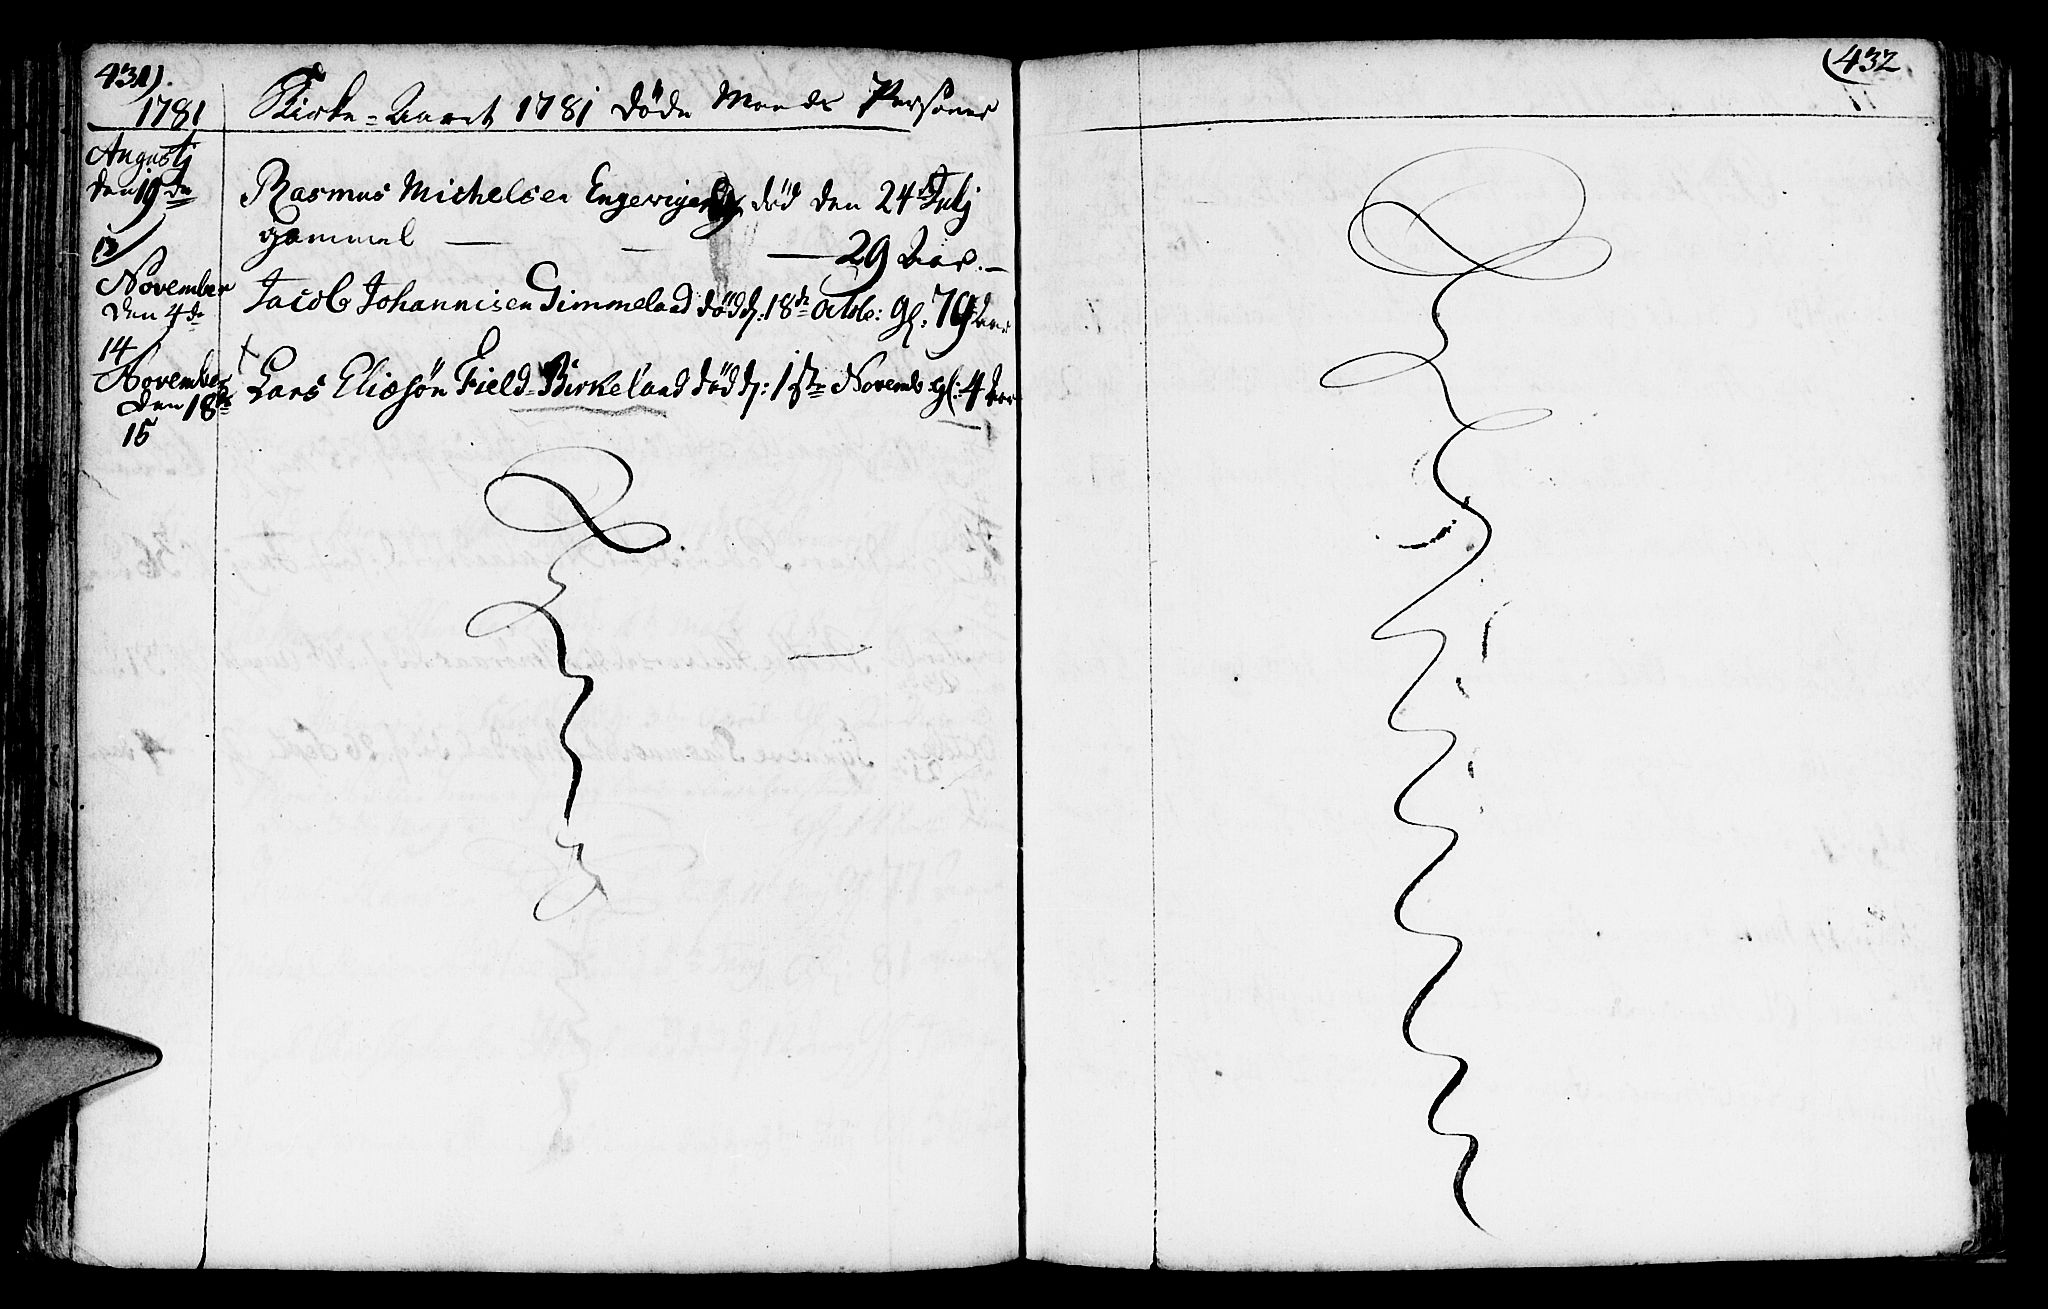 431).
1781
Kirke-Aaret 1781 døde Mands Personer
Augustj
den 19de
13
Rasmus Michelsen død den 24de Julj
gammel — — — 29 Aar. —
November
den 4de
14
Jacob Johannisen Gimmeland død d: 18de octobr: gl: 79 Aar
November
den 18de
15
Lars Eliesøn Field-Birkeland død d: 1ste Novemb: gl: 4 Aar
(432